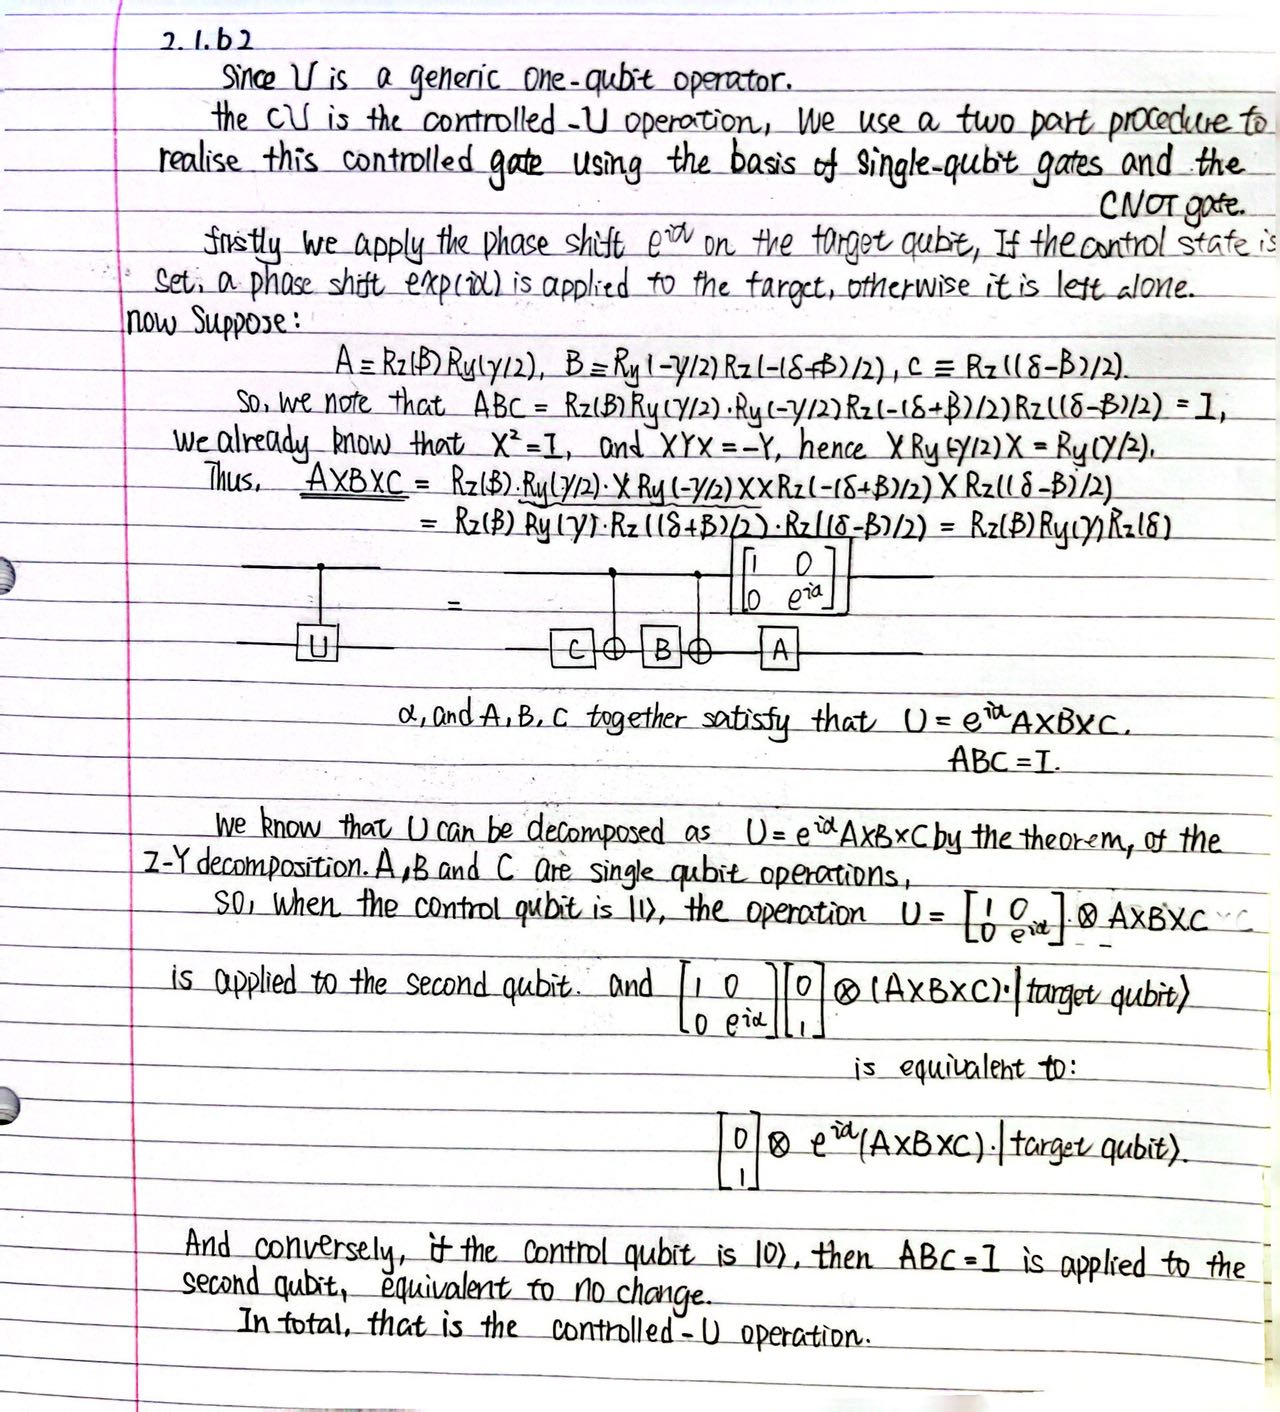 2.1.b2
Since U is a generic one-qubit operator.
the CU is the controlled-U operation, We use a two part procedure to
realise this controlled gate using the basis of single-qubit gates and the
CNOT gate.
firstly we apply the phase shift e^{iα} on the target qubit, If the control state is
set, a phase shift exp(iα) is applied to the target, otherwise it is left alone.
now Suppose:
A ≡ Rz(β) Ry(γ/2), B ≡ Ry(-γ/2) Rz(-(δ+β)/2), C ≡ Rz((δ-β)/2).
So, we note that ABC = Rz(β) Ry(γ/2)·Ry(-γ/2) Rz(-(δ+β)/2) Rz((δ-β)/2) = I,
we already know that X²=I, and XYX=-Y, hence X Ry(-γ/2) X = Ry(γ/2).
Thus, AXBXC = Rz(β)·Ry(γ/2)·X Ry(-γ/2) XX Rz(-(δ+β)/2) X Rz((δ-β)/2)
= Rz(β) Ry(γ)·Rz((δ+β)/2)·Rz((δ-β)/2) = Rz(β) Ry(γ) Rz(δ)
[1 0
0 e^{iα}]
=
U C B A
α, and A, B, C together satisfy that U = e^{iα}AXBXC.
ABC = I.
We know that U can be decomposed as U = e^{iα}AXBXC by the theorem, of the
Z-Y decomposition. A, B and C are single qubit operations,
so, when the control qubit is |1⟩, the operation U = [1 0; 0 e^{iα}] ⊗ AXBXC
is applied to the second qubit. and [1 0; 0 e^{iα}] [0; 1] ⊗ (AXBXC)·|target qubit⟩
is equivalent to:
[0; 1] ⊗ e^{iα}(AXBXC)·|target qubit⟩.
And conversely, if the control qubit is |0⟩, then ABC=I is applied to the
second qubit, equivalent to no change.
In total, that is the controlled-U operation.